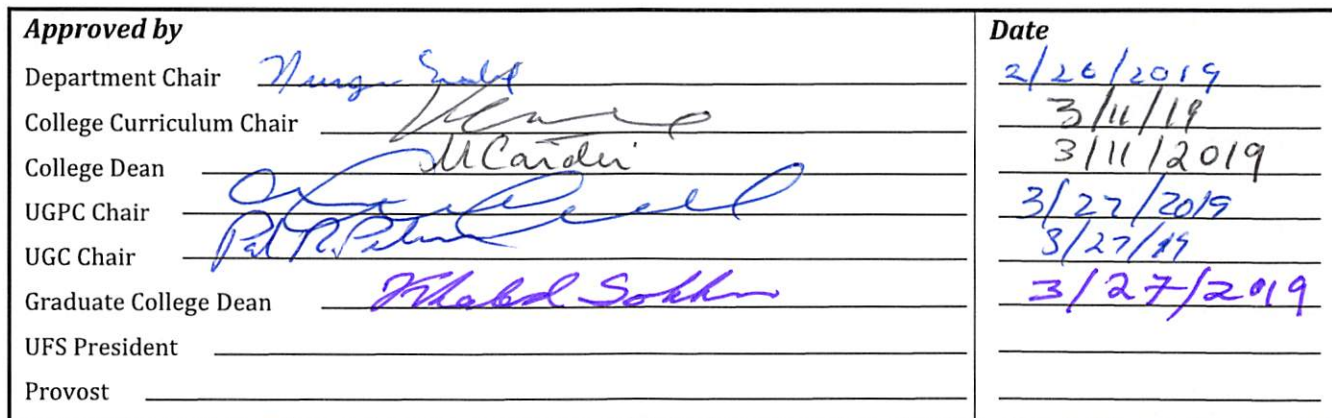 Approved by Date
Department Chair 2/26/2019
College Curriculum Chair 3/11/19
College Dean MCardei 3/11/2019
UGPC Chair 3/27/2019
UGC Chair 3/27/19
Graduate College Dean Khaled Sobhan 3/27/2019
UFS President
Provost